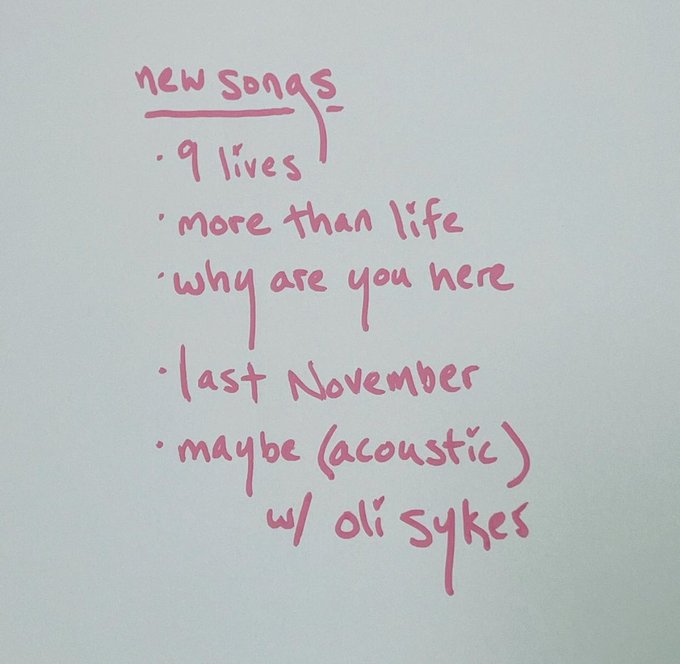 new songs
· 9 lives
· more than life
· why are you here
· last November
· maybe (acoustic)
w/ oli sykes